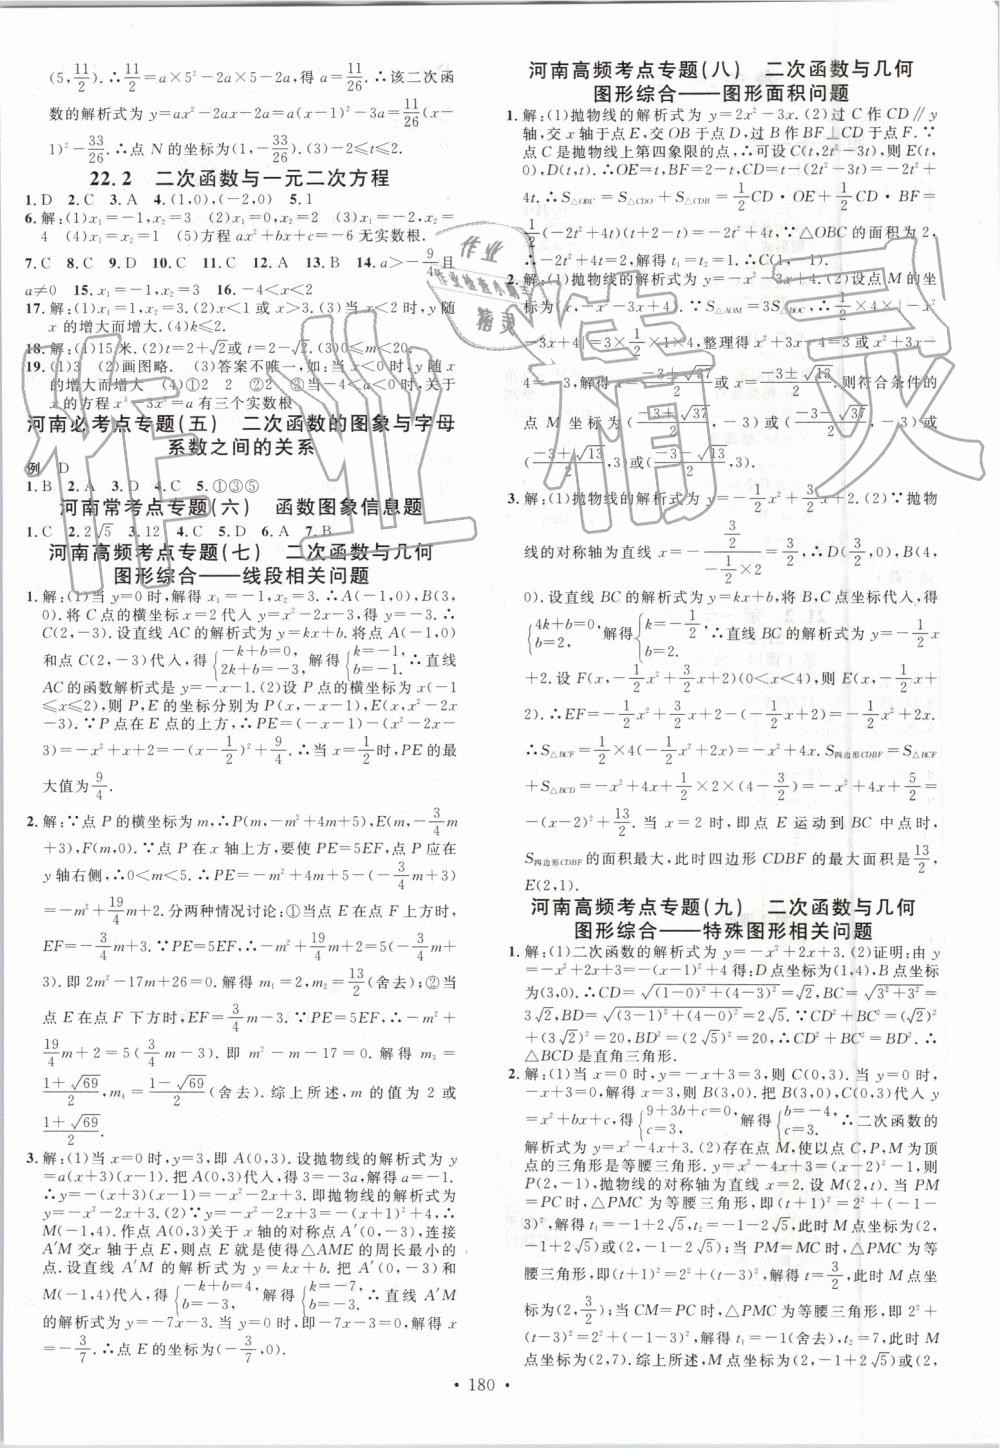 (5,11/2).∴11/2=a×5²-2a×5-2a.∴a=11/26.∴该二次函
数的解析式为 y=ax²-2ax-2a=a(x-1)²-3a=11/26(x-
1)²-33/26.∴点 N 的坐标为(1,-33/26).(3)-2≤t≤2.
22.2 二次函数与一元二次方程
1.D 2.C 3.A 4.(1,0),(-2,0) 5.1
6.解:(1)x₁=-1,x₂=3 (2)x₁=x₂=2 (3)x₁=-1,x₂=
4 (4)x₁=0,x₂=3 (5)方程 ax²+bx+c=-6 无实数根.
7.C 8.C 9.D 10.C 11.C 12.A 13.B 14.a>-9/4且
a≠0 15.x₁=-1,x₂=3 16.-4<x<2
17.解:(1)x₁=1,x₂=3.(2)x<1 或 x>3.(3)当 x<2 时,y 随
x 的增大而增大.(4)k≤2.
18.解:(1)15米.(2)t=2+√2或t=2-√2.(3)0≤m<20.
19.(1)3 (2)画图略. (3)答案不唯一,如:当 x>2 时,y 随 x
的增大而增大 (4)①2 2 ②2 ③关于
x 的方程 x³-3x²=a 有三个实数根
河南必考点专题(五) 二次函数的图象与字母
系数之间的关系
例 D
1.B 2.A 3.D 4.C 5.①③⑤
河南常考点专题(六) 函数图象信息题
1.C 2.2√5 3.12 4.C 5.D 6.A 7.B
河南高频考点专题(七) 二次函数与几何
图形综合——线段相关问题
1.解:(1)当 y=0 时,解得 x₁=-1,x₂=3.∴A(-1,0),B(3,
0).将 C 点的横坐标 x=2 代入 y=x²-2x-3,得 y=-3.∴
C(2,-3).设直线 AC 的解析式为 y=kx+b.将点 A(-1,0)
和点 C(2,-3)代入,得{-k+b=0,2k+b=-3.解得{k=-1,b=-1.∴直线
AC 的函数解析式是 y=-x-1.(2)设 P 点的横坐标为 x(-1
≤x≤2),则 P,E 的坐标分别为 P(x,-x-1),E(x,x²-2x
-3).∵P 点在 E 点的上方,∴PE=(-x-1)-(x²-2x-
3)=-x²+x+2=-(x-1/2)²+9/4.∴当 x=1/2时,PE 的最
大值为9/4.
2.解:∵点 P 的横坐标为 m,∴P(m,-m²+4m+5),E(m,-3/4m
+3),F(m,0).∵点 P 在 x 轴上方,要使 PE=5EF,点 P 应在
y 轴右侧,∴0<m<5.∴PE=-m²+4m+5-(-3/4m+3)=
-m²+19/4m+2.分两种情况讨论:①当点 E 在点 F 上方时,
EF=-3/4m+3.∵PE=5EF,∴-m²+19/4m+2=5(-3/4m+
3).即 2m²-17m+26=0.解得 m₁=2,m₂=13/2(舍去);②当
点 E 在点 F 下方时,EF=3/4m-3.∵PE=5EF,∴-m²+
19/4m+2=5(3/4m-3).即 m²-m-17=0.解得 m₃=
(1+√69)/2,m₄=(1-√69)/2(舍去).综上所述,m 的值为 2 或
(1+√69)/2.
3.解:(1)当 x=0 时,y=3,即 A(0,3).设抛物线的解析式为 y
=a(x+3)(x-1).把 A(0,3)代入,得 3=-3a,解得 a=-1.
∴y=-(x+3)(x-1)=-x²-2x+3,即抛物线的解析式为 y=
-x²-2x+3.(2)∵y=-x²-2x+3=-(x+1)²+4,∴
M(-1,4).作点 A(0,3)关于 x 轴的对称点 A′(0,-3),连接
A′M 交 x 轴于点 E,则点 E 就是使得△AME 的周长最小的
点.设直线 A′M 的解析式为 y=kx+b.把 A′(0,-3)和
M(-1,4)代入,得{-k+b=4,b=-3,解得{k=-7,b=-3.∴直线 A′M
的解析式为 y=-7x-3.当 y=0 时,-7x-3=0,解得 x=
-3/7.∴点 E 的坐标为(-3/7,0).
河南高频考点专题(八) 二次函数与几何
图形综合——图形面积问题
1.解:(1)抛物线的解析式为 y=2x²-3x.(2)过 C 作 CD∥y
轴,交 x 轴于点 E,交 OB 于点 D,过 B 作 BF⊥CD 于点 F.∵
点 C 是抛物线上第四象限的点,∴可设 C(t,2t²-3t),则 E(t,
0),D(t,t).∴OE=t,BF=2-t,CD=t-(2t²-3t)=-2t²+
4t.∴S△OBC=S△CDO+S△CDB=1/2CD·OE+1/2CD·BF=
1/2(-2t²+4t)(t+2-t)=-2t²+4t.∵△OBC 的面积为 2,
∴-2t²+4t=2,解得 t₁=t₂=1.∴C(1,-1).
2.解:(1)抛物线的解析式为 y=-x²-3x+4.(2)设点 M 的坐
标为(x,-x²-3x+4).∵S△AOM=3S△BOC,∴1/2×4×|-x²
-3x+4|=3×1/2×1×4,整理得 x²+3x-4=3 或 x²+3x-
4=-3,解得 x=(-3±√37)/2或 x=(-3±√13)/2.则符合条件的
点 M 坐标为((-3+√37)/2,-3)或((-3-√37)/2,-3)或
((-3+√13)/2,3)或((-3-√13)/2,3).
3.解:(1)抛物线的解析式为 y=-1/2x²+3/2x+2.(2)∵抛物
线的对称轴为直线 x=3/2,∴D(3/2,0),B(4,
0).设直线 BC 的解析式为 y=kx+b,将 B,C 点坐标代入,得
{4k+b=0,b=2,解得{k=-1/2,b=2.∴直线 BC 的解析式为 y=-1/2x
+2.设 F(x,-1/2x²+3/2x+2)(0<x<4),则 E(x,-1/2x+
2).∴EF=-1/2x²+3/2x+2-(-1/2x+2)=-1/2x²+2x.
∴S△BCF=1/2×4(-1/2x²+2x)=-x²+4x.∴S四边形CDBF=S△BCF
+S△BCD=-x²+4x+1/2×2×(4-3/2)=-x²+4x+5/2=
-(x-2)²+13/2.当 x=2 时,即点 E 运动到 BC 中点时,
S四边形CDBF的面积最大,此时四边形 CDBF 的最大面积为13/2,
E(2,1).
河南高频考点专题(九) 二次函数与几何
图形综合——特殊图形相关问题
1.解:(1)二次函数的解析式为 y=-x²+2x+3.(2)证明:由 y
=-x²+2x+3=-(x-1)²+4 得:D 点坐标为(1,4),B 点坐标
为(3,0).∴CD=√((1-0)²+(4-3)²)=√2,BC=√(3²+3²)=
3√2,BD=√((3-1)²+(4-0)²)=2√5.∵CD²+BC²=(√2)²
+(3√2)²=20,BD²=(2√5)²=20,∴CD²+BC²=BD².∴
△BCD 是直角三角形.
2.解:(1)当 x=0 时,y=-x+3=3,则 C(0,3).当 y=0 时,
-x+3=0,解得 x=3,则 B(3,0).把 B(3,0),C(0,3)代入 y
=x²+bx+c,得{9+3b+c=0,c=3,解得{b=-4,c=3.∴二次函数的
解析式为 y=x²-4x+3.(2)存在点 M,使以点 C,P,M 为顶
点的三角形是等腰三角形.∵y=x²-4x+3=(x-2)²-1,则
P(2,-1),抛物线的对称轴为直线 x=2,设 M(2,t).当 PM
=PC 时,△PMC 为等腰三角形,即(t+1)²=2²+(-1-
3)²,解得 t₁=-1+2√5,t₂=-1-2√5,此时 M 点坐标为
(2,-1+2√5)或(2,-1-2√5);当 PM=MC 时,△PMC 为
等腰三角形,即(t+1)²=2²+(t-3)²,解得 t=3/2,此时 M 点坐
标为(2,3/2);当 CM=PC 时,△PMC 为等腰三角形,即 2²+
(t-3)²=2²+(-1-3)²,解得 t₁=-1(舍去),t₂=7,此时 M
点坐标为(2,7).综上所述,M 点坐标为(2,-1+2√5)或(2,
· 180 ·
作业精灵
作业
精灵